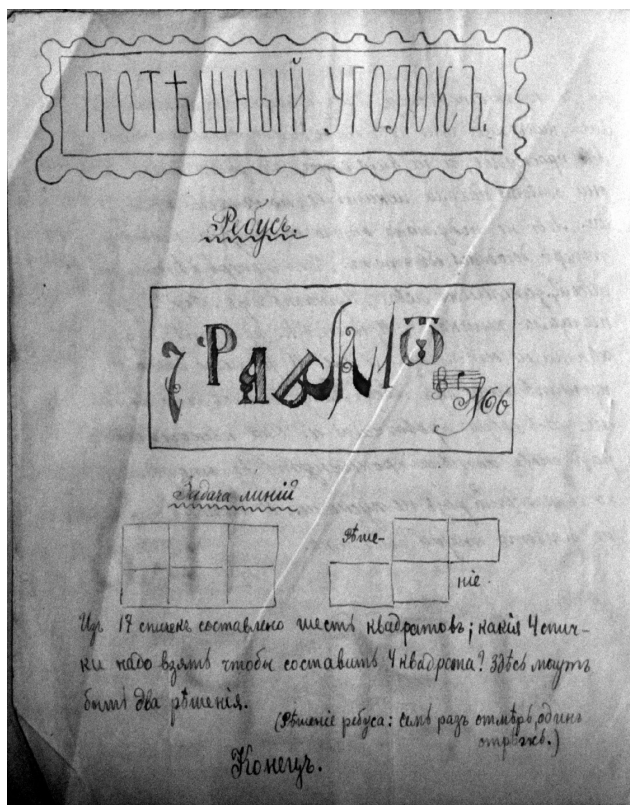 ПОТѢШНЫЙ УГОЛОКЪ.
Ребусъ.
7 РАЗ
Задача линій
Рѣше-
ніе.
Из 17 спичекъ составлено шесть квадратовъ; какія 4 спич-
ки надо взять чтобы составить 4 квадрата? Здѣсь могутъ
быть два рѣшенія.
(Рѣшеніе ребуса: семь разъ отмѣрь, одинъ
отрѣжь.)
Конецъ.